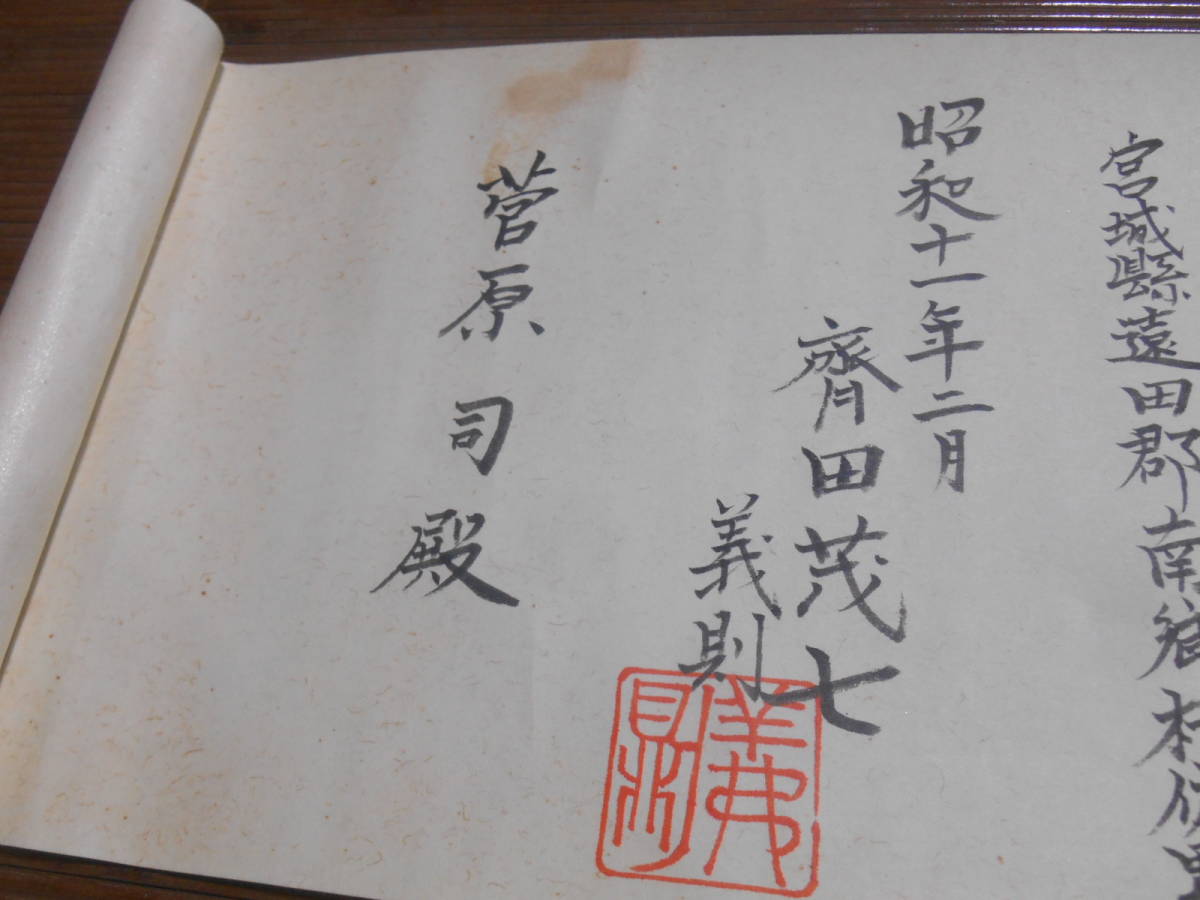 宮城縣遠田郡南郷村
昭和十一年二月
齊田茂七
義則
義則
菅原司殿